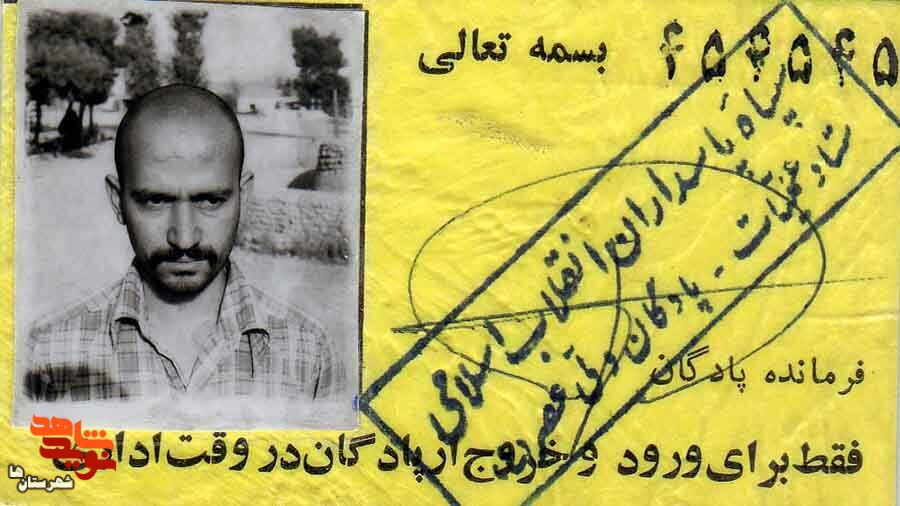 بسمه تعالی
سپاه پاسداران انقلاب اسلامی
ستاد عملیات - پادگان ولی عصر
فرمانده پادگان
فقط برای ورود و خروج از پادگان در وقت اداری
نوید شاهد
شهرستان ها